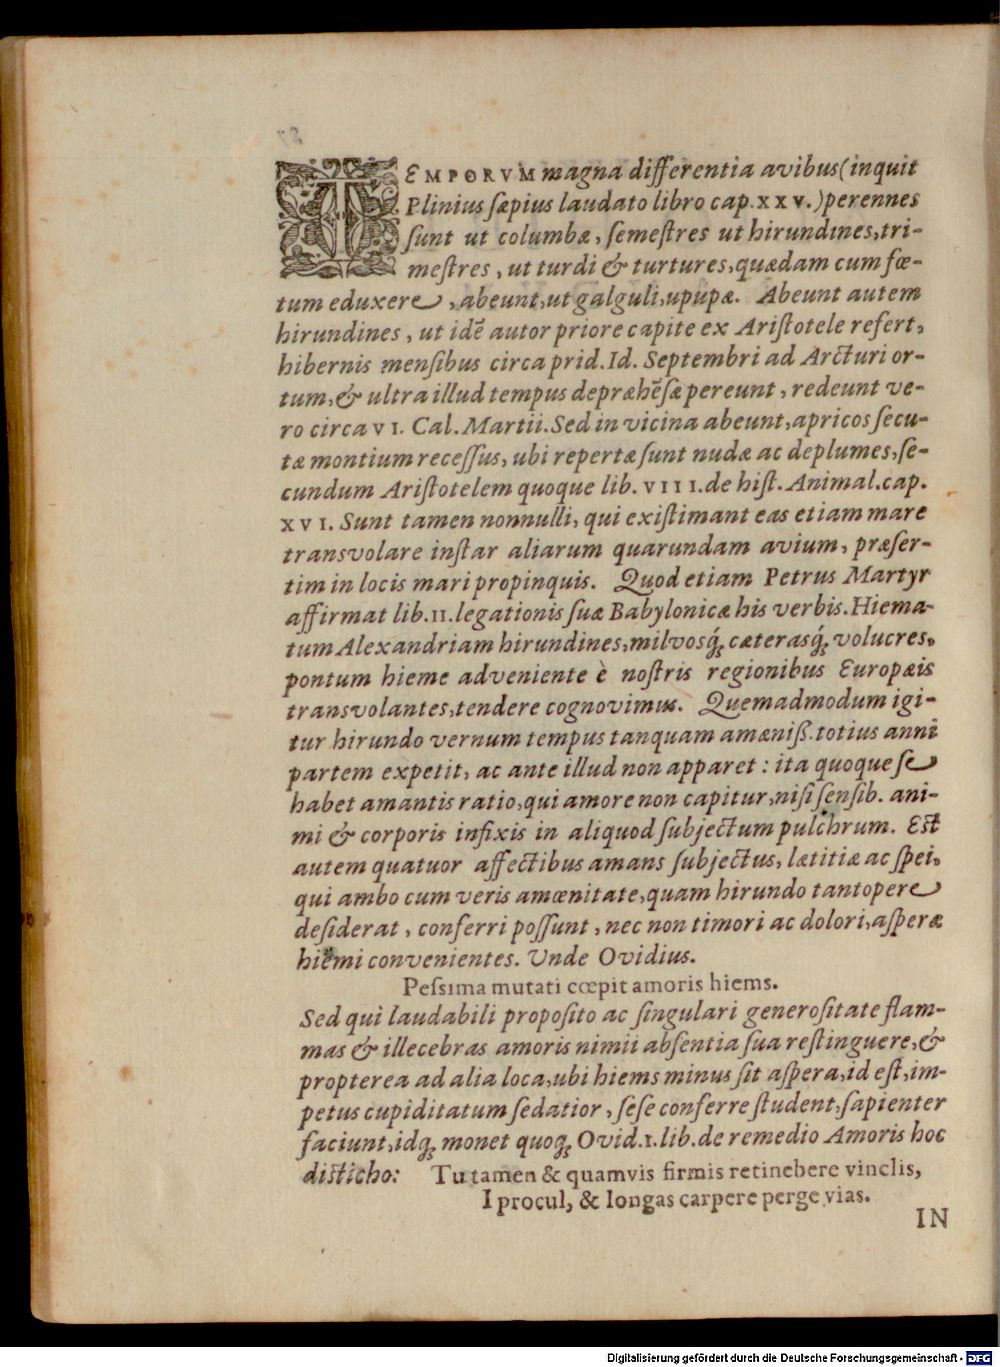 TEMPORVM magna differentia avibus (inquit
Plinius sæpius laudato libro cap. XXV.) perennes
ſunt ut columbæ, ſemeſtres ut hirundines, tri-
meſtres, ut turdi & turtures, quædam cum fœ-
tum eduxere, abeunt, ut galguli, upupæ. Abeunt autem
hirundines, ut idẽ autor priore capite ex Ariſtotele refert,
hibernis menſibus circa prid. Id. Septembri ad Arcturi or-
tum, & ultra illud tempus depræhẽſæ pereunt, redeunt ve-
ro circa VI. Cal. Martii. Sed in vicina abeunt, apricos ſecu-
tæ montium receſſus, ubi repertæ ſunt nudæ ac deplumes, ſe-
cundum Ariſtotelem quoque lib. VIII. de hiſt. Animal. cap.
XVI. Sunt tamen nonnulli, qui exiſtimant eas etiam mare
transvolare inſtar aliarum quarundam avium, præſer-
tim in locis mari propinquis. Quod etiam Petrus Martyr
affirmat lib. II. legationis ſuæ Babylonicæ his verbis. Hiema-
tum Alexandriam hirundines, milvosq́; cæterasq́; volucres,
pontum hieme adveniente è noſtris regionibus Europæis
transvolantes, tendere cognovimus. Quemadmodum igi-
tur hirundo vernum tempus tanquam amæniß. totius anni
partem expetit, ac ante illud non apparet: ita quoque ſe
habet amantis ratio, qui amore non capitur, niſi ſenſib. ani-
mi & corporis infixis in aliquod ſubjectum pulchrum. Eſt
autem quatuor affectibus amans ſubjectus, lætitiæ ac ſpei,
qui ambo cum veris amœnitate, quam hirundo tantopere
deſiderat, conferri poſſunt, nec non timori ac dolori, aſperæ
hiemi convenientes. Unde Ovidius.
Peſsima mutati cœpit amoris hiems.
Sed qui laudabili propoſito ac ſingulari generoſitate flam-
mas & illecebras amoris nimii abſentia ſua reſtinguere, &
propterea ad alia loca, ubi hiems minus ſit aſpera, id eſt, im-
petus cupiditatum ſedatior, ſeſe conferre ſtudent, ſapienter
faciunt, idq; monet quoq; Ovid. 1. lib. de remedio Amoris hoc
diſticho: Tu tamen & quamvis firmis retinebere vinclis,
I procul, & longas carpere perge vias.
IN
Digitalisierung gefördert durch die Deutsche Forschungsgemeinschaft - DFG